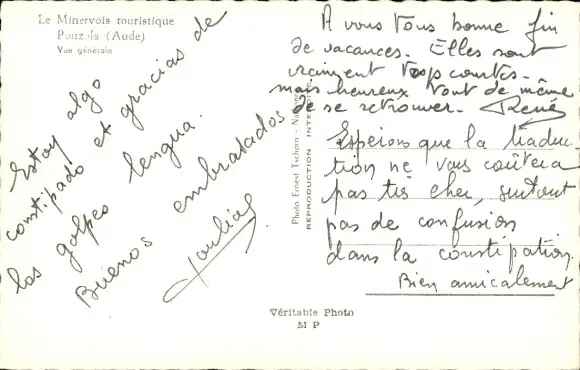 Le Minervois touristique
Pouzols (Aude)
Vue générale
Estoy algo
constipado et gracias de
las golpes lengua.
Buenos embrasados
A vous Tous bonne fin
de vacances. Elles sont
vraiment trop courtes.
mais heureux tout de même
de se retrouver. René
Espérons que la traduc-
tion ne vous coûtera
pas très cher, surtout
pas de confusion
dans la constipation.
Bien amicalement
Photo Ernest Tschann
REPRODUCTION
Véritable Photo
M P